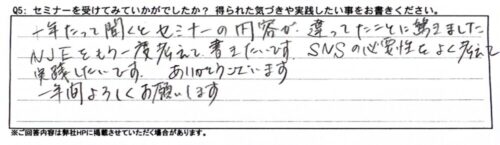 Q5: セミナーを受けてみていかがでしたか? 得られた気づきや実践したい事をお書きください。
一年たって聞くとセミナーの内容が、違ってたことに驚きました
NJEをもう一度考えて書きたいです。SNSの必要性をよく考えて
実践したいです。ありがとうございます
一年間よろしくお願いします
※ご回答内容は弊社HPに掲載させていただく場合があります。